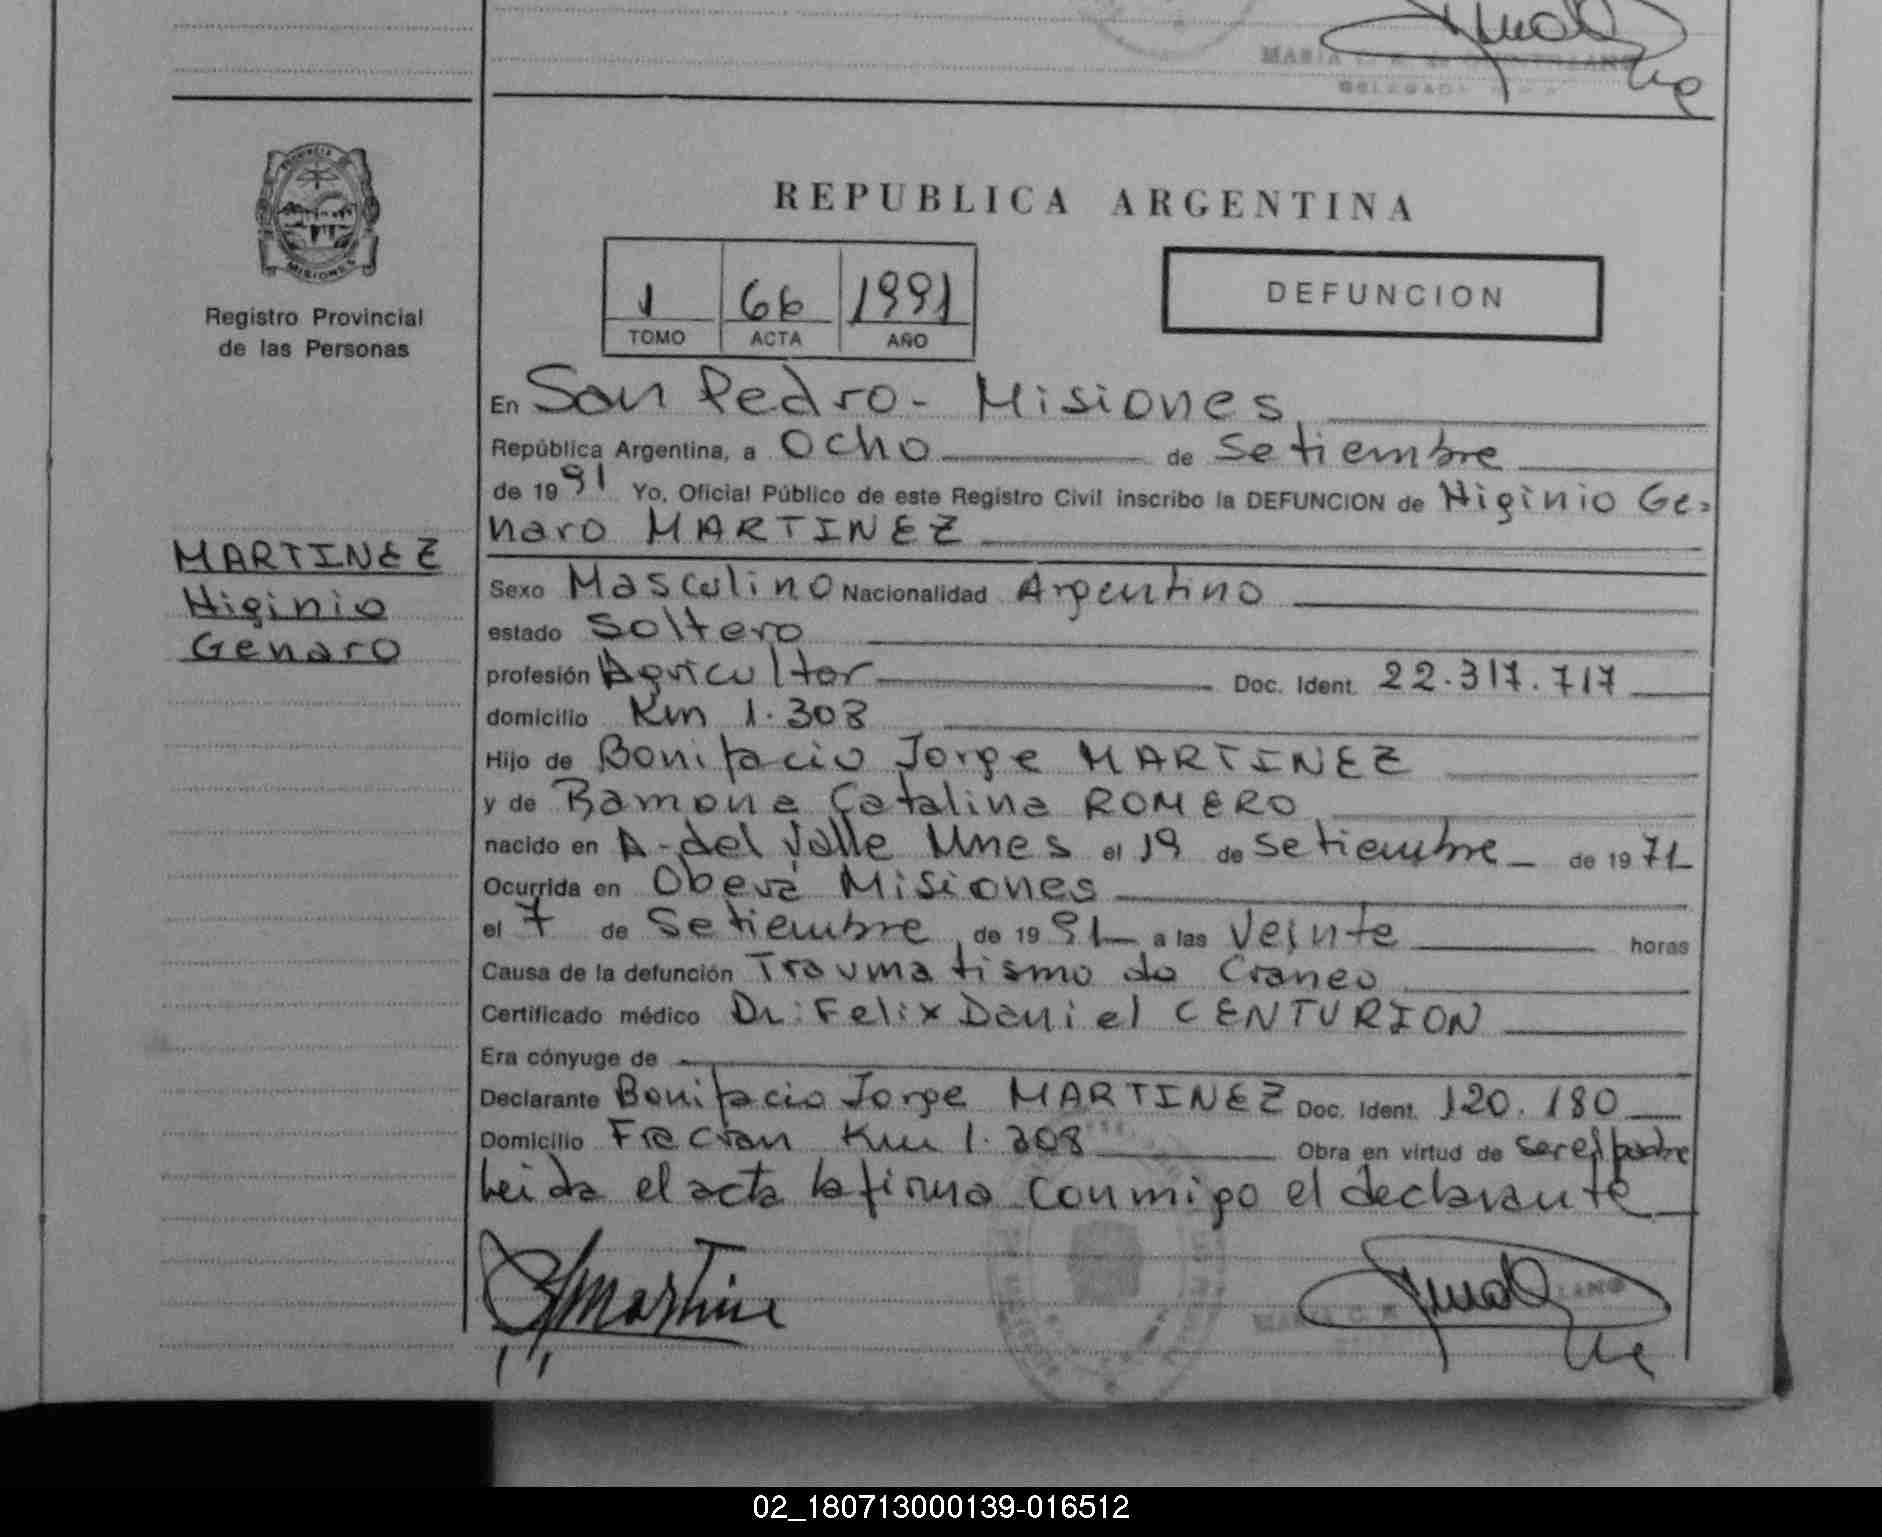 PROVINCIA
MISIONES
Registro Provincial
de las Personas
MARTINEZ
Higinio
Genaro
REPUBLICA ARGENTINA
1 66 1991
TOMO ACTA AÑO
DEFUNCION
En San Pedro - Misiones
República Argentina, a Ocho de Setiembre
de 1991 Yo, Oficial Público de este Registro Civil inscribo la DEFUNCION de Higinio Ge-
naro MARTINEZ
Sexo Masculino Nacionalidad Argentino
estado Soltero
profesión Agricultor Doc. Ident. 22.317.717
domicilio Km 1.308
Hijo de Bonifacio Jorge MARTINEZ
y de Ramona Catalina ROMERO
nacido en A. del Valle Mnes el 19 de Setiembre de 1971
Ocurrida en Oberá Misiones
el 7 de Setiembre de 1991 a las Veinte horas
Causa de la defunción Traumatismo de Craneo
Certificado médico Dr: Felix Daniel CENTURION
Era cónyuge de
Declarante Bonifacio Jorge MARTINEZ Doc. Ident. 120.180
Domicilio Fracran Km 1.308 Obra en virtud de ser el padre
Leida el acta la firma conmigo el declarante
02_180713000139-016512